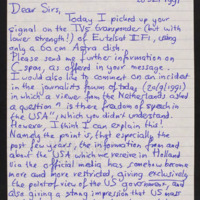 Dear Sirs,
Today I picked up your
signal on the TV5 transponder (but with
lower strength!) of Eutelsat II F1, using
only a 60 cm Astra dish.
Please send me further information on
C-span, as offered in your message.
I would also like to comment on an incident
in the journalists forum of today (20/9/1991)
in which a viewer from the Netherlands asked
a question "is there freedom of speech in
the USA", which you didn't understand.
However, I think I can explain this!
Namely the point is, that especially the
past few years, the information from and
about the USA which we receive in Holland
via the official media, has somehow become
more and more restricted, giving exclusively
the point of view of the US government, and
also giving a strong impression that US mass